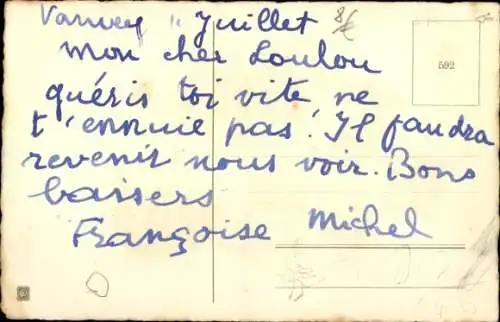 Vanvey 11 Juillet
mon cher Loulou
592
guéris toi vite ne
t'ennuie pas! Il faudra
revenir nous voir. Bons
baisers
Françoise Michel